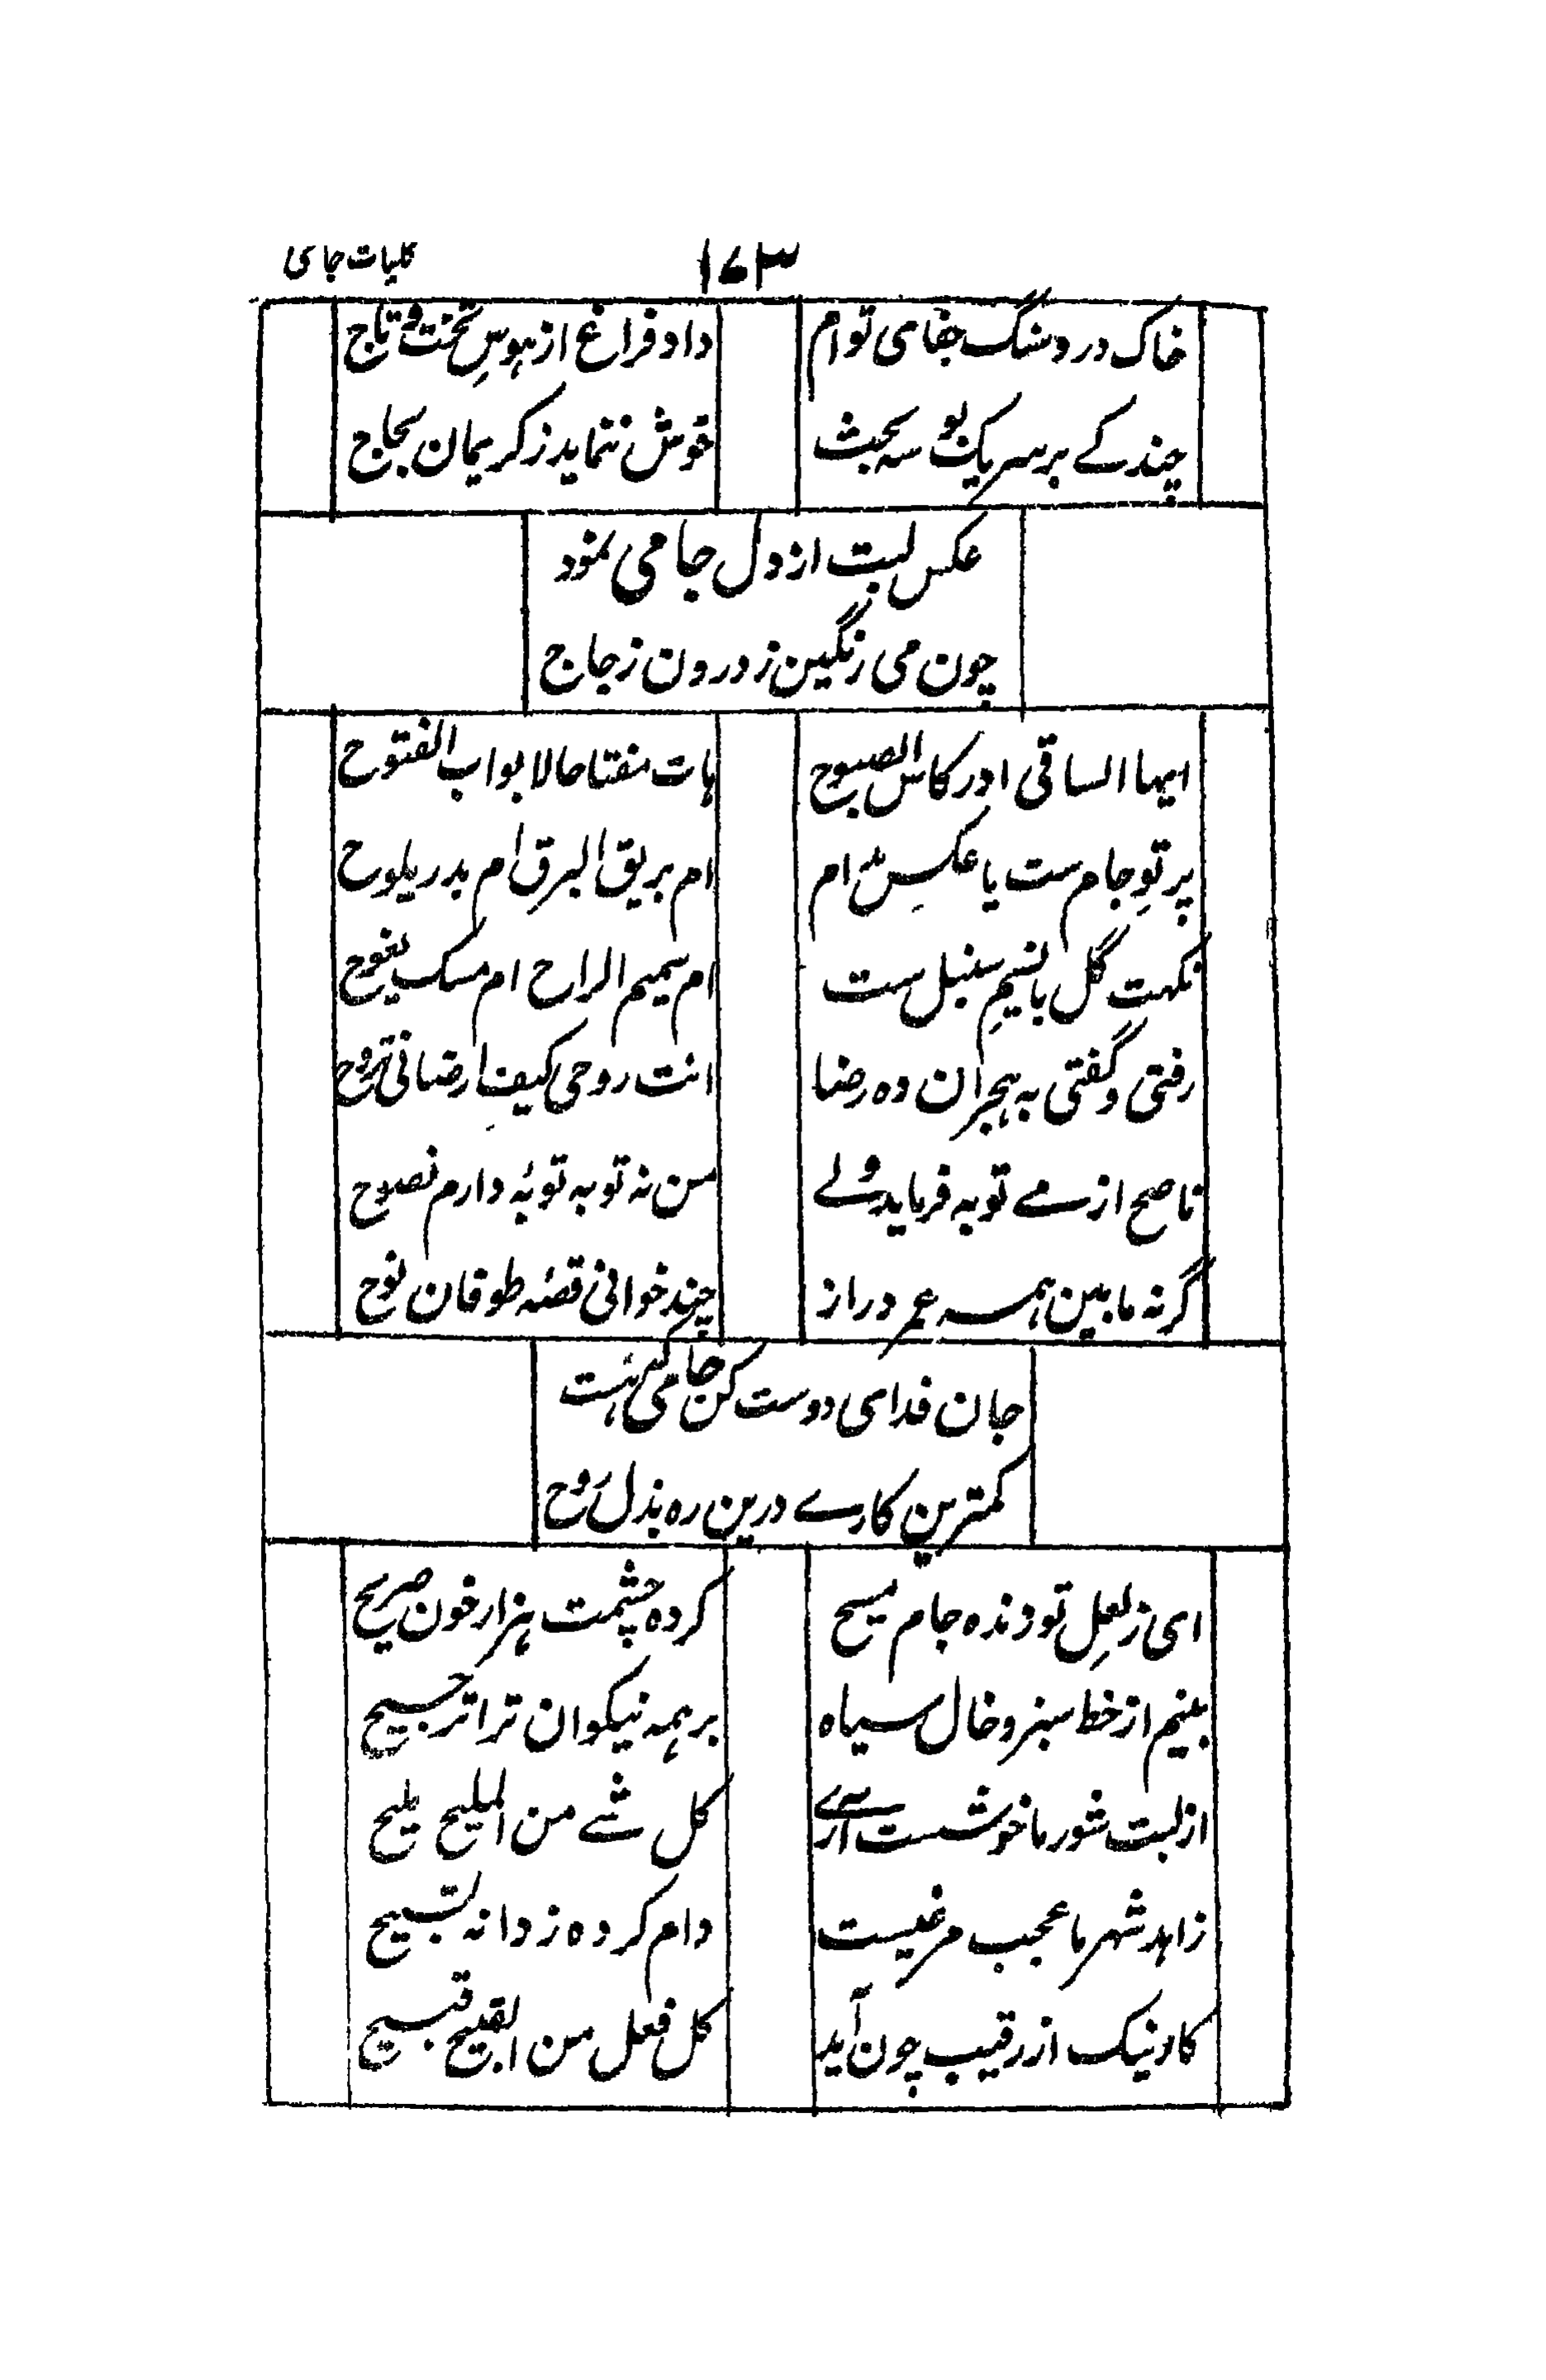 ۱۷۳ کلیات جامی
خاک در و سنگ جفای توام
داد فراغ از ہوسِ تخت و تاج
چند کے بر سر یک بوسہ بحث
خوش ننماید ز کریمان لجاج
عکس لبت از دل جامی نمود
چون می رنگین ز درون زجاج
ایہا الساقی ادر کاس الصبوح
ہات مفتاحا لابواب الفتوح
پرتوِ جام ست یا عکسِ مے ام
ام بریق البرق ام بدر یلوح
نکہتِ گل یا نسیمِ سنبل ست
ام شمیم الراح ام مسک یفوح
رفتی و گفتی بہ ہجران دہ رضا
انت روحی کیف ارضانی تروح
ناصح از مے توبہ فرماید ولے
من نہ توبہ توبۂ دارم نصوح
گریہ ما بین ہمہ عمر دراز
چند خوانی قصۂ طوفان نوح
جان فدای دوست کن جامی کہ ہست
کمترین کارے درین رہ بذل روح
ای ز لعلِ تو زندہ جام مسیح
کردہ چشمت ہزار خون صریح
بینم از خط سبز و خال سیاہ
بر ہمہ نیکوان ترا ترجیح
از لبت شور ما خوشست آرے
کل شے من الملیح ملیح
زاہد شہر ما عجب مرغیست
دام کردہ ز دانہ تسبیح
کار نیک از رقیب چون آید
کل فعل من القبیح قبیح